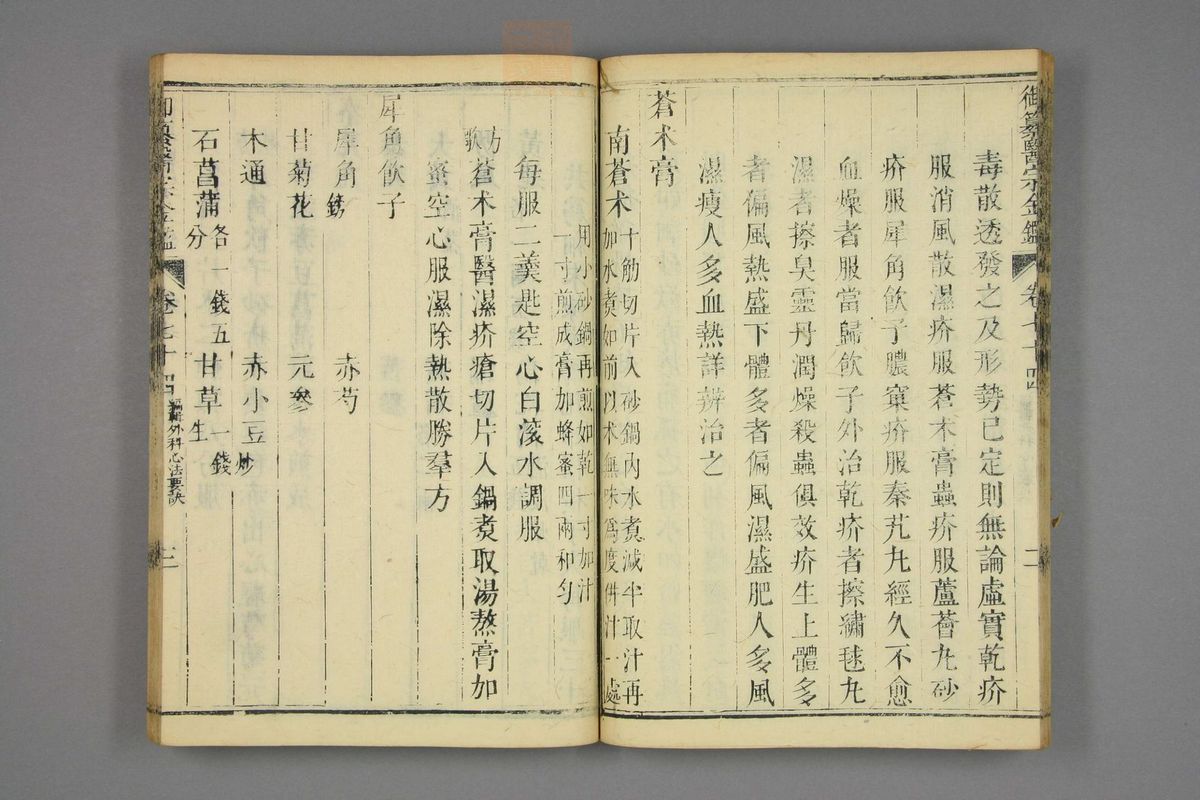 御纂醫宗金鑑 卷七十四 二
毒散透發之及形勢已定則無論虛實乾疥
服消風散濕疥服蒼术膏蟲疥服蘆薈丸砂
疥服犀角飲子膿窠疥服秦艽丸經久不愈
血燥者服當歸飲子外治乾疥者擦繡毬丸
濕者擦臭靈丹潤燥殺蟲俱效疥生上體多
者偏風熱盛下體多者偏風濕盛肥人多風
濕瘦人多血熱詳辨治之
蒼术膏
南蒼术十觔切片入砂鍋內水煮減半取汁再
加水煮如前以术無味爲度併汁一處
用小砂鍋再煎如乾一寸加汁
一寸煎成膏加蜂蜜四兩和勻
每服二羹匙空心白滾水調服
方歌蒼术膏醫濕疥瘡切片入鍋煮取湯熬膏加
蜜空心服濕除熱散勝羣方
犀角飲子
犀角鎊 赤芍
甘菊花 元參
木通 赤小豆炒
石菖蒲各一錢五分 甘草生一錢
御纂醫宗金鑑 卷七十四 編輯外科心法要訣 三